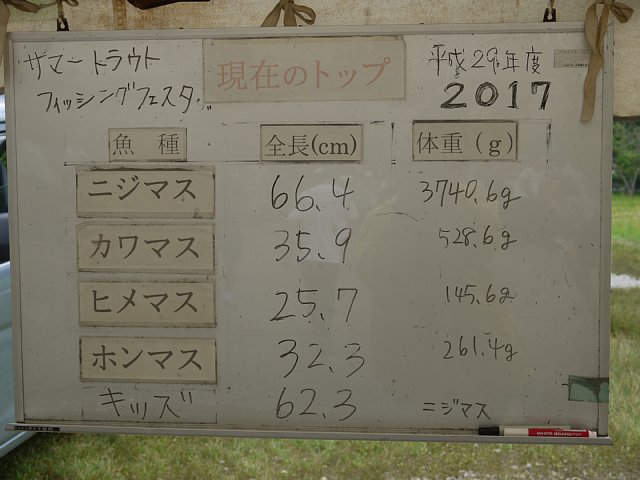 サマートラウト
フィッシングフェスタ
現在のトップ
平成29年度
2017
魚種 全長(cm) 体重(g)
ニジマス 66.4 3740.6g
カワマス 35.9 528.6g
ヒメマス 25.7 145.6g
ホンマス 32.3 261.4g
キッズ 62.3 ニジマス
WHITE BOARD